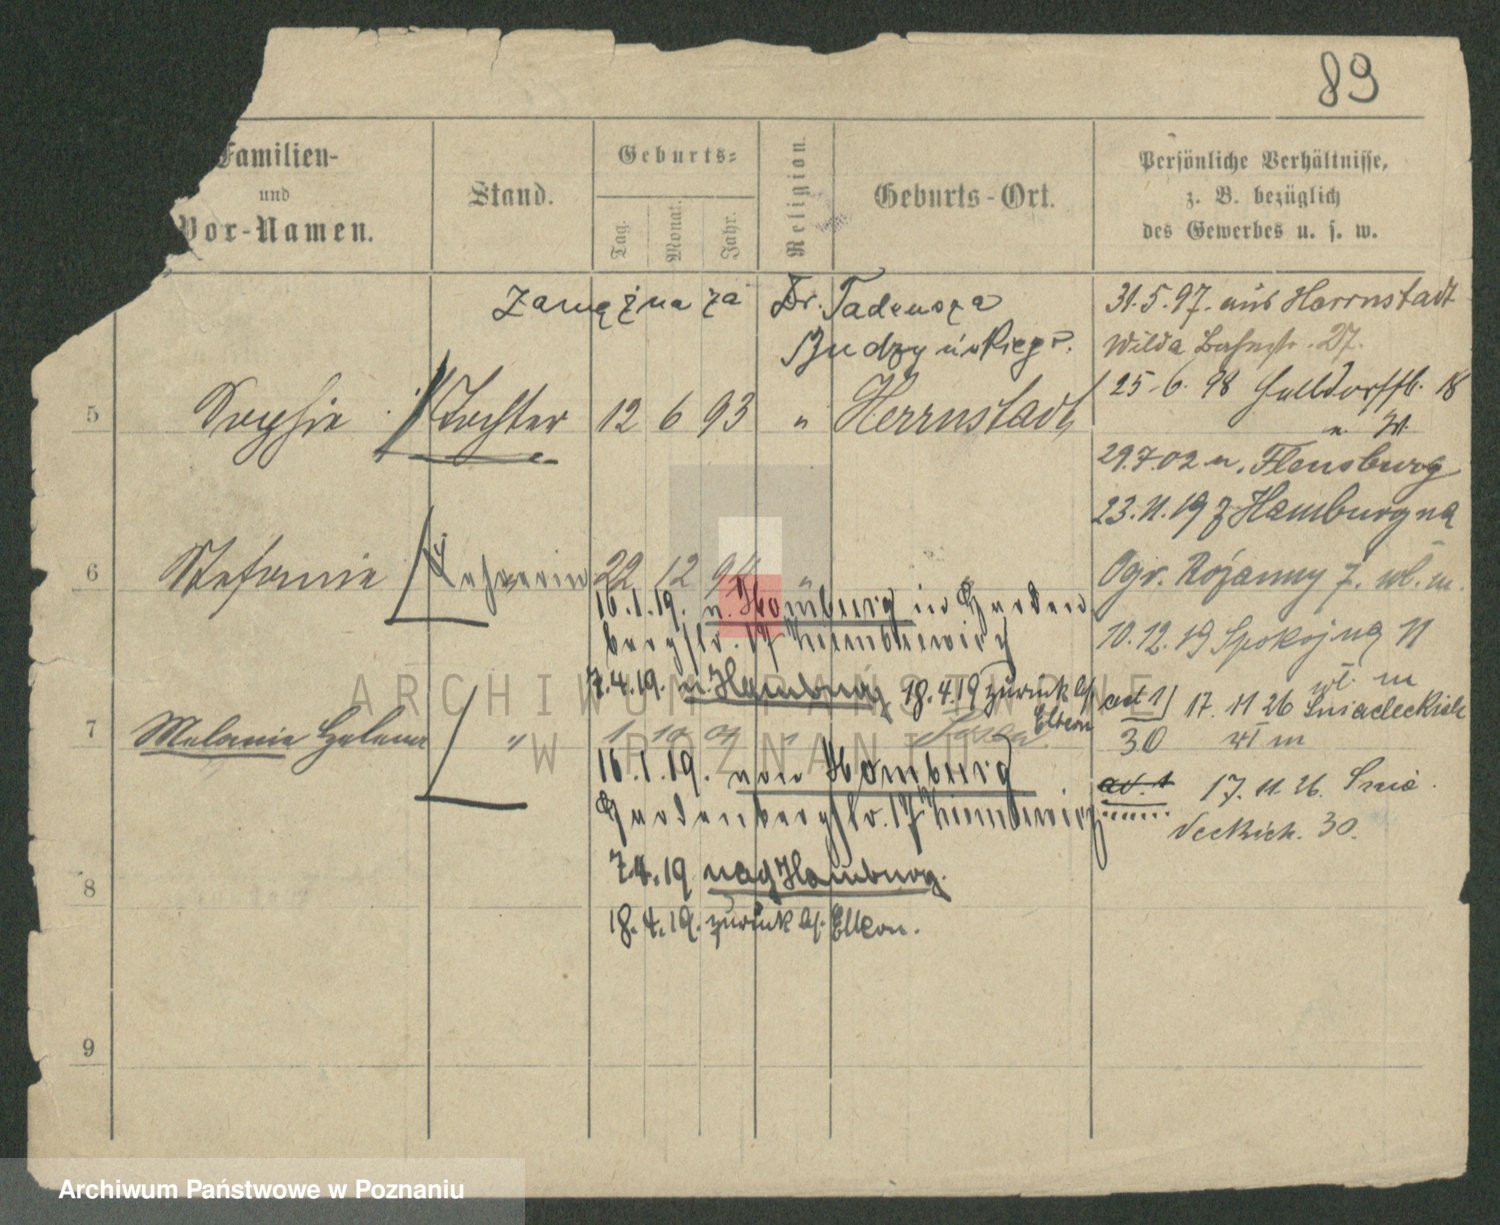 89
Familien-
und
Vor-Namen.
Stand.
Geburts-
Tag.
Monat.
Jahr.
Religion.
Geburts-Ort.
Persönliche Verhältnisse,
z. B. bezüglich
des Gewerbes u. s. w.
Zamężna za Dr. Tadeusza
Budzyńskiego.
31.5.97. aus Herrnstadt
Wilda 27.
5 Sophie Tochter 12 6 93 " Herrnstadt
25-6. 98 18
29.7.02 n. Flensburg
23.11.19 z Hamburg na
6 Stefanie Lehrerin 22 12 94 "
Ogr. Różanny 7. wł. m.
16.1.19. v. Homburg in Garden
bergstr. 17
10.12.19 Spokojna 11
wł. m
7.4.19. n. Hamburg 18.4.19 zurück b/
Eltern
ad 1) 17. 11 26 Śniadeckich
30 wł m
7 Melanie Helena " 1 10 "
16.1.19. von Homburg
Gardenbergstr. 17
ad. 1 17. 11. 26. Śnia
deckich. 30.
7.4.19 nach Hamburg.
8
18.4.19. zurück b/. Eltern.
9
ARCHIWUM PAŃSTWOWE
W POZNANIU
Archiwum Państwowe w Poznaniu